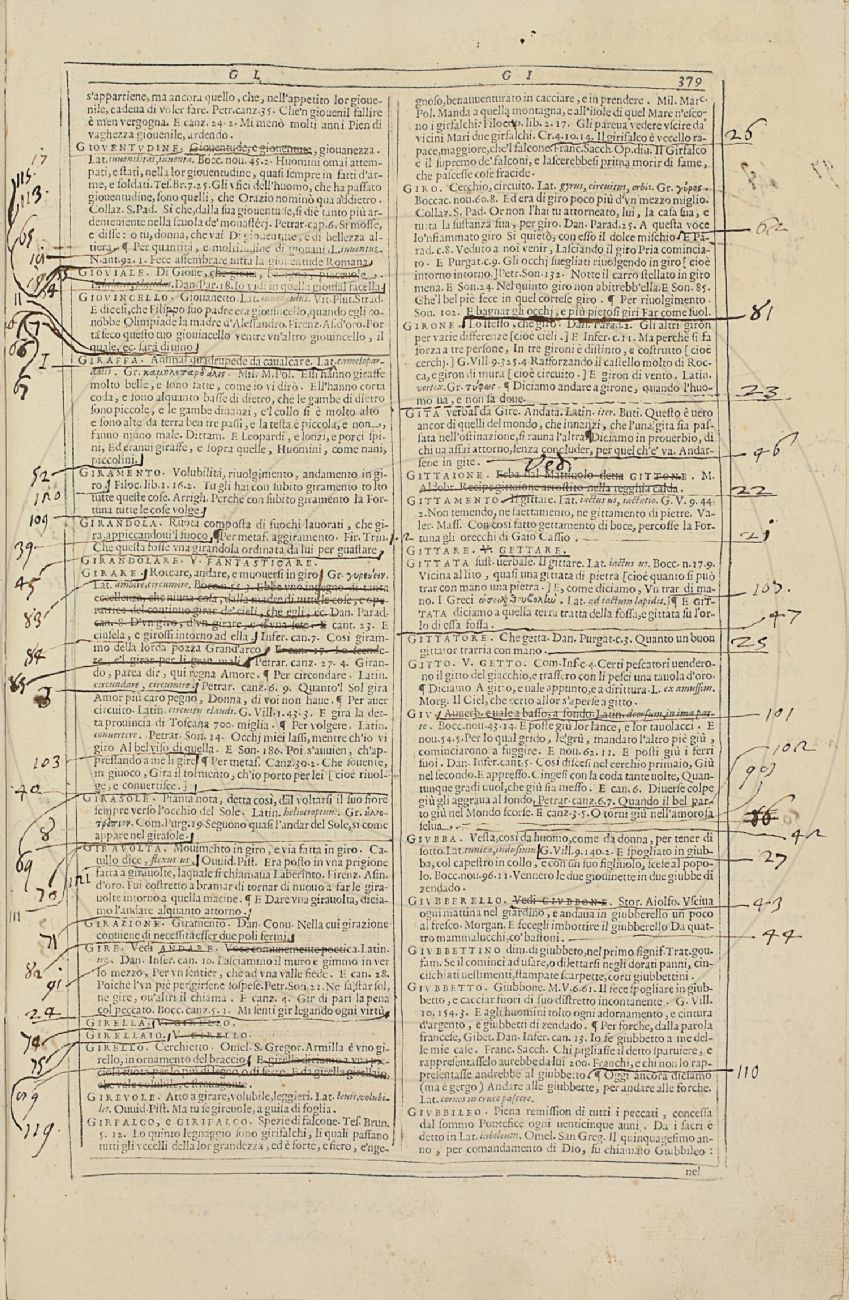 G I
G I
379
s'appartiene, ma ancora quello, che, nell'appetito lor gioue-
nile, cade na di voler fare. Petr. canz. 35. Che'n giouenil fallire
è men vergogna. E canz. 24. 2. Mi menò molti anni Pien di
vaghezza giouenile, ardendo.
GIOVENTVDINE. Giouentude, e giouentus, giouanezza.
Lat. iuuentus. Bocc. nou. 45. 2. Huomini omai attem-
pati, e stati, nella lor giouentudine, quasi sempre in fatti d'ar-
me, e soldati. Tes. Br. 7. 25. Gli vfici dell'huomo, che ha passato
giouentudine, sono quelli, che Orazio nominò qua addietro.
Collaz. S. Pad. Sì che, dalla sua giouentude, si diè tanto più ar-
dentemente nella scuola de' monasterj. Petrar. cap. 6. Si mosse,
e disse: o tu, donna, che vai Di giouentute, e di bellezza al-
tiera. ¶ Per quantità, e moltitudine di giouani. L. iuuentus.
N. ant. 92. 1. Fece assembrare tutta la giouentude Romana
GIOVIALE. Di Gioue,
Dan. Par. 18. Io vidi in quella giouial facella
GIOVINCELLO. Giouanetto. Lat. Vit. Plut. Strad.
E dicesi, che Filippo suo padre era giouincello, quando egli co-
nobbe Olimpiade la madre d'Alessandro. Firenz. As. d'oro. Por-
tasseco questo tuo giouincello ventre vn'altro giouincello, il
quale, ec. sarà diuino
I
GIRAFFA. Animal quadrupede da caualcare. Lat. camelopar-
dalis. Gr. καμηλοπάρδαλις. Mil. M. Pol. Essi hanno giraffe
molto belle, e sono fatte, come io vi dirò. Ell'hanno corta
coda, e sono alquanto basse di dietro, che le gambe di dietro
sono piccole, e le gambe dinanzi, e'l collo si è molto alto
e sono alto da terra ben tre passi, e la testa è piccola, e non
fanno niuno male. Dittam. E Leopardi, e lonzi, e porci spi-
ni, Ed eranui giraffe, e sopra quelle, Huomini, come nani,
piccolini.
GIRAMENTO. Volubilità, riuolgimento, andamento in gi-
ro. Filoc. lib. 1. 16. 2. Tu gli hai con subito giramento tolto
tutte queste cose. Arrigh. Perchè con subito giramento la For-
tuna tutte le cose volge
GIRANDOLA. Ruota composta di fuochi lauorati, che gi-
ra, appiccandoui'l fuoco. ¶ Per metaf. aggiramento. Fir. Trin.
Che questa fosse vna girandola ordinata da lui per guastare
GIRANDOLARE. V. FANTASTICARE.
GIRARE. Roteare, andare, e muouersi in giro. Gr.
Lat. ambire, circumire. Bocc. n. 55. 2. Ebbe vno ingegno di tanta
eccellenza, che niuna cosa, dalla madre di tutte le cose, e ope-
ratrice del continuo girar de' cieli, che egli, ec. Dan. Parad.
can. 8. D'vn giro, d'vn girare, e d'vna sete. E cant. 23. E
cinsela, e girossi intorno ad ella. Infer. can. 7. Così giram-
mo della lorda pozza Grand'arco
Petrar. canz. 27. 4. Giran-
do, parea dir, qui regna Amore. ¶ Per circondare. Latin.
circundare, circumire. Petrar. canz. 6. 9. Quanto'l Sol gira
Amor più caro pegno, Donna, di voi non haue. ¶ Per auer
circuito. Latin. circuitu claudi. G. Vill. 1. 43. 3. E gira la det-
ta prouincia di Toscana 700. miglia. ¶ Per volgere. Latin.
conuertere. Petrar. Son. 14. Occhj miei lassi, mentre ch'io vi
giro Al bel viso di quella. E Son. 186. Poi s'auuien, ch'ap-
pressando a me li gire ¶ Per metaf. Canz. 30. 2. Che souente,
in giuoco, Gira il tormento, ch'io porto per lei [cioè riuol-
ge, e conuertisce.]
GIRASOLE. Pianta nota, detta così, dal voltarsi il suo fiore
sempre verso l'occhio del Sole. Latin. heliotropium. Gr. ἡλιο-
τρόπιον. Com. Purg. 19. Seguono quasi l'andar del Sole, sì come
appare nel girasole.
GIRAVOLTA. Mouimento in giro, e via fatta in giro. Ca-
tullo dice, flexus us. Ouuid. Pist. Era posto in vna prigione
fatta a girauolte, la quale si chiamaua Laberinto. Firenz. Asin.
d'oro. Fui costretto a bramar di tornar di nuouo a far le gira-
uolte intorno a quella macine. ¶ E Dare vna girauolta, dicia-
mo l'andare alquanto attorno.
GIRAZIONE. Giramento. Dan. Conu. Nella cui girazione
conuiene di necessità esser due poli fermi.
GIRE. Vedi ANDARE. Voce comunemente poetica. Latin.
ire. Dan. Infer. can. 10. Lasciammo il muro e gimmo in ver
lo mezzo, Per vn sentier, che ad vna valle fiede. E can. 28.
Poichè l'vn piè per girsene sospese. Petr. Son. 21. Ne sa, star sol,
ne gire, ou'altri il chiama. E canz. 4. Gir di pari la pena
col peccato. Bocc. canz. 5. 1. Mi sentì gir legando ogni virtù
GIRELLA. V. GIRELLO.
GIRELLAIO. V. GIRELLO.
GIRELLO. Cerchietto. Omel. S. Gregor. Armilla è vno gi-
rello, in ornamento del braccio. E girella diciamo a vna pic-
ciola ruota per lo più di legno o di ferro. E da girella girellaio,
che vale volubile, e strauagante.
GIREVOLE. Atto a girare, volubile, leggieri. Lat. leuis, volubi-
lis. Ouuid. Pist. Ma tu se gireuole, a guisa di foglia.
GIRFALCO, e GIRIFALCO. Spezie di falcone. Tes. Brun.
5. 12. Lo quinto legnaggio sono girifalchi, li quali passano
tutti gli vccelli della lor grandezza, ed è forte, e fiero, e'nge-
gnoso, benauuenturato in cacciare, e in prendere. Mil. Marc.
Pol. Manda a quella montagna, e all'isole di quel Mare n'esco-
no i girfalchi. Filocop. lib. 2. 17. Gli pareua vedere vscire da'
vicini Mari due girfalchi. Cr. 4. 10. 14. Il girfalco è vccello ra-
pace, maggiore, che'l falcone. Franc. Sacch. Op. diu. Il Girfalco
è il supremo de' falconi, e lascerebbesi prima morir di fame,
che pascesse cose fracide.
GIRO. Cerchio, circuito. Lat. gyrus, circuitus, orbis. Gr. γῦρος.
Boccac. nou. 60. 8. Ed era di giro poco più d'vn mezzo miglio.
Collaz. S. Pad. Or non l'hai tu attorneato, lui, la casa sua, e
tutta la sustanza sua, per giro. Dan. Parad. 25. A questa voce
lo'nfiammato giro Si quietò, con esso il dolce mischio E Pa-
rad. c. 8. Veduto a noi venir, Lasciando il giro Pria comincia-
to. E Purgat. c. 9. Gli occhj suegliati riuolgendo in giro [cioè
intorno intorno.] Petr. Son. 132. Notte il carro stellato in giro
mena. E Son. 24. Nel quinto giro non abitrebb'ella. E Son. 85.
Che'l bel piè fece in quel cortese giro. ¶ Per riuolgimento.
Son. 102. E bagnar gli occhj, e più pietosi giri Far come suol.
GIRONE. Lo stesso, che giro. Dan. Par. c. 2. Gli altri giron
per varie differenze [cioè cieli.] E Infer. c. 11. Ma perchè si fa
forza a tre persone, In tre gironi è distinto, e costrutto [cioè
cerchj.] G. Vill. 9. 325. 4. Rafforzando il castello molto di Roc-
ca, e giron di mura [cioè circuito.] E giron di vento. Latin.
vertex. Gr. γῦρος. ¶ Diciamo andare a girone, quando l'huo-
mo va, e non sa doue.
GITA verbal da Gire. Andata. Latin. iter. Buti. Questo è uero
ancor di quelli del mondo, che innanzi, che l'una gita sia pas-
sata nell'ostinazione, si rauna l'altra. ¶ Diciamo in prouerbio, di
chi ua assai attorno, senza concluder, per quel ch'e' va. Andar-
sene in gite.
Vedi
GITTAIONE. Erba dal Mattiuolo detta GITTONE. M.
Aldobr. Recipe gittaione arrostito nella tegghia calda.
GITTAMENTO. Il gittare. Lat. iactus us, iactatio. G. V. 9. 44.
2. Non temendo, ne saettamento, ne gittamento di pietre. Va-
ler. Mass. Con così fatto gettamento di boce, percosse la For-
tuna gli orecchi di Gaio Cassio.
GITTARE. V. GETTARE.
GITTATA sust. verbale. Il gittare. Lat. iactus us. Bocc. n. 17. 9.
Vicina al lito, quasi una gittata di pietra [cioè quanto si può
trar con mano una pietra.] E, come diciamo, Vn trar di ma-
no. I Greci Lat. ad iactum lapidis. ¶ E GIT-
TATA diciamo a quella terra tratta della fossa, e gittata su l'or-
lo di essa fossa.
GITTATORE. Che getta. Dan. Purgat. c. 3. Quanto un buon
gittator trarria con mano.
GITTO. V. GETTO. Com. Inf. c. 4. Certi pescatori uendero-
no il gitto del giacchio, e trassero con li pesci una tauola d'oro.
¶ Diciamo A gitto, e uale appunto, e a dirittura. L. ex amussim.
Morg. Il Ciel, che certo allor s'aperse a gitto.
GIV. Auuerb. e uale a basso, a fondo. Latin. deorsum, in ima par-
te. Bocc. nou. 43. 14. E poste giù lor lance, e lor tauolacci. E
nou. 54. 5. Per lo qual grido, le grù, mandato l'altro piè giù,
cominciarono a fuggire. E nou. 62. 11. E posti giù i ferri
suoi. Dan. Infer. cant. 5. Così discesi nel cerchio primaio, Giù
nel secondo. E appresso. Cingesi con la coda tante uolte, Quan-
tunque gradi uuol, che giù sia messo. E can. 6. Diuerse colpe
giù gli aggraua al fondo. Petrar. canz. 6. 7. Quando il bel par-
to giù nel Mondo scorse. E canz. 3. 5. O torni giù nell'amorosa
selua.
GIVBBA. Vesta, così da huomo, come da donna, per tener di
sotto. Lat. tunica, indusium. G. Vill. 9. 140. 2. E spogliato in giub-
ba, col capestro in collo, e con un suo figliuolo, scese al popo-
lo. Bocc. nou. 96. 11. Vennero le due giouinette in due giubbe di
zendado.
GIVBBERELLO. Vedi GIVBBONE. Stor. Aiolfo. Vsciua
ogni mattina nel giardino, e andaua in giubberello un poco
al fresco. Morgan. E fecegli imbottire il giubberello Da quat-
tro mammalucchi, co' bastoni.
GIVBBETTINO dim. di giubbetto, nel primo signif. Trat. gou.
fam. Se il cominci ad usare, o dilettarsi negli dorati panni, cin-
cischiati uestimenti, stampate scarpette, corti giubbettini.
GIVBBETTO. Giubbone. M. V. 6. 61. Il fece spogliare in giub-
betto, e cacciar fuori di suo distretto incontanente. G. Vill.
10. 154. 3. E agli huomini tolto ogni adornamento, e cintura
d'argento, e giubbetti di zendado. ¶ Per forche, dalla parola
francese, Gibet. Dan. Infer. can. 13. Io fe giubbetto a me del-
le mie case. Franc. Sacch. Chi pigliasse il detto sparuiere, e
rappresentasselo aurebbe da lui 200. Franchi, e chi non lo rap-
presentasse andrebbe al giubbetto. ¶ Oggi ancora diciamo
(ma è gergo) Andare alle giubbette, per andare alle forche.
Lat. coruos in cruce pascere.
GIVBBILEO. Piena remission di tutti i peccati, concessa
dal sommo Pontefice ogni uenticinque anni. Da i sacri è
detto in Lat. iubileum. Omel. San Greg. Il quinquagesimo an-
no, per comandamento di Dio, fu chiamato Giubbileo:
nel
17
115
113
65
101
11
52
110
109
39
45
83
84
85
103
40
8
69
70
111
71
82
91
24
74
75
109
119
26
62
81
23
46
22
21
107
47
25
101
102
90
42
27
43
44
110